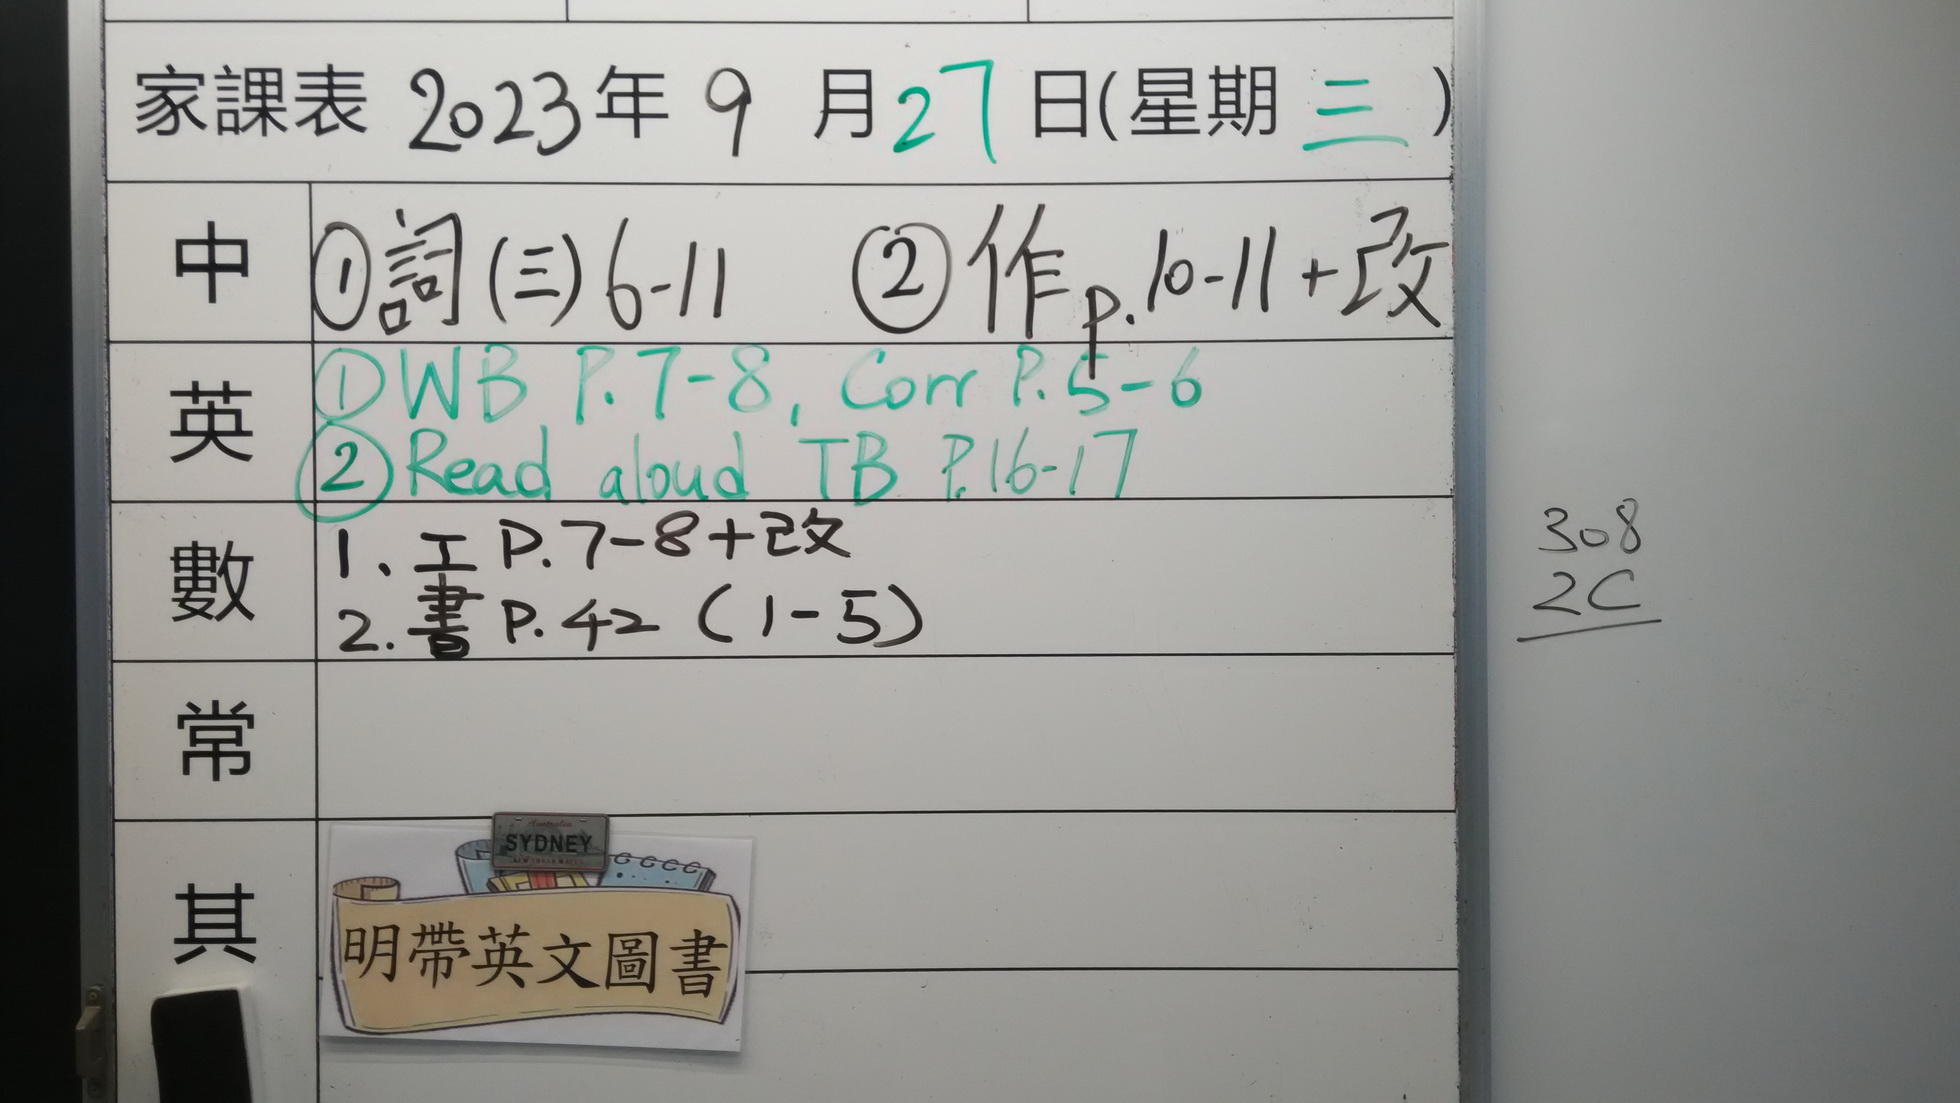 家課表 2023年 9 月 27 日(星期 三 )
中 ①詞(三)6-11 ②作p.10-11+改
英 ①WB P.7-8, Corr P.5-6
②Read aloud TB P.16-17
數 1. 工 P.7-8+改
2. 書 P.42 (1-5)
308
2C
常
其
Australia
SYDNEY
明帶英文圖書